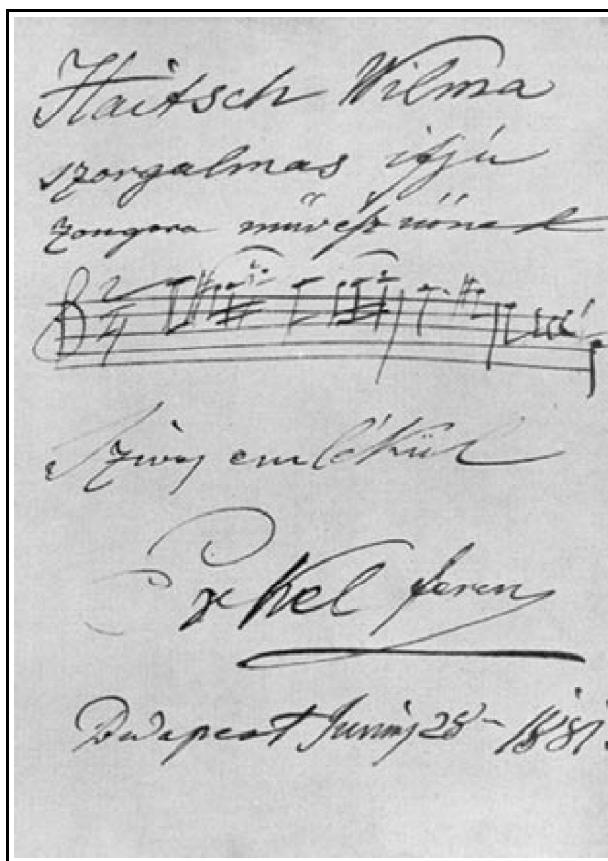 Haitsch Wilma
szorgalmas ifjú
zongora művésznőnek
2/4
Szives emlékül
Erkel Ferencz
Budapest Junius 28 1881.